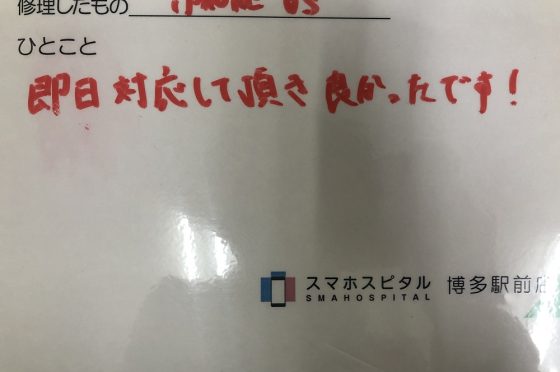 修理したもの iPhone 6s
ひとこと
即日対応して頂き良かったです!
スマホスピタル 博多駅前店
SMAHOSPITAL